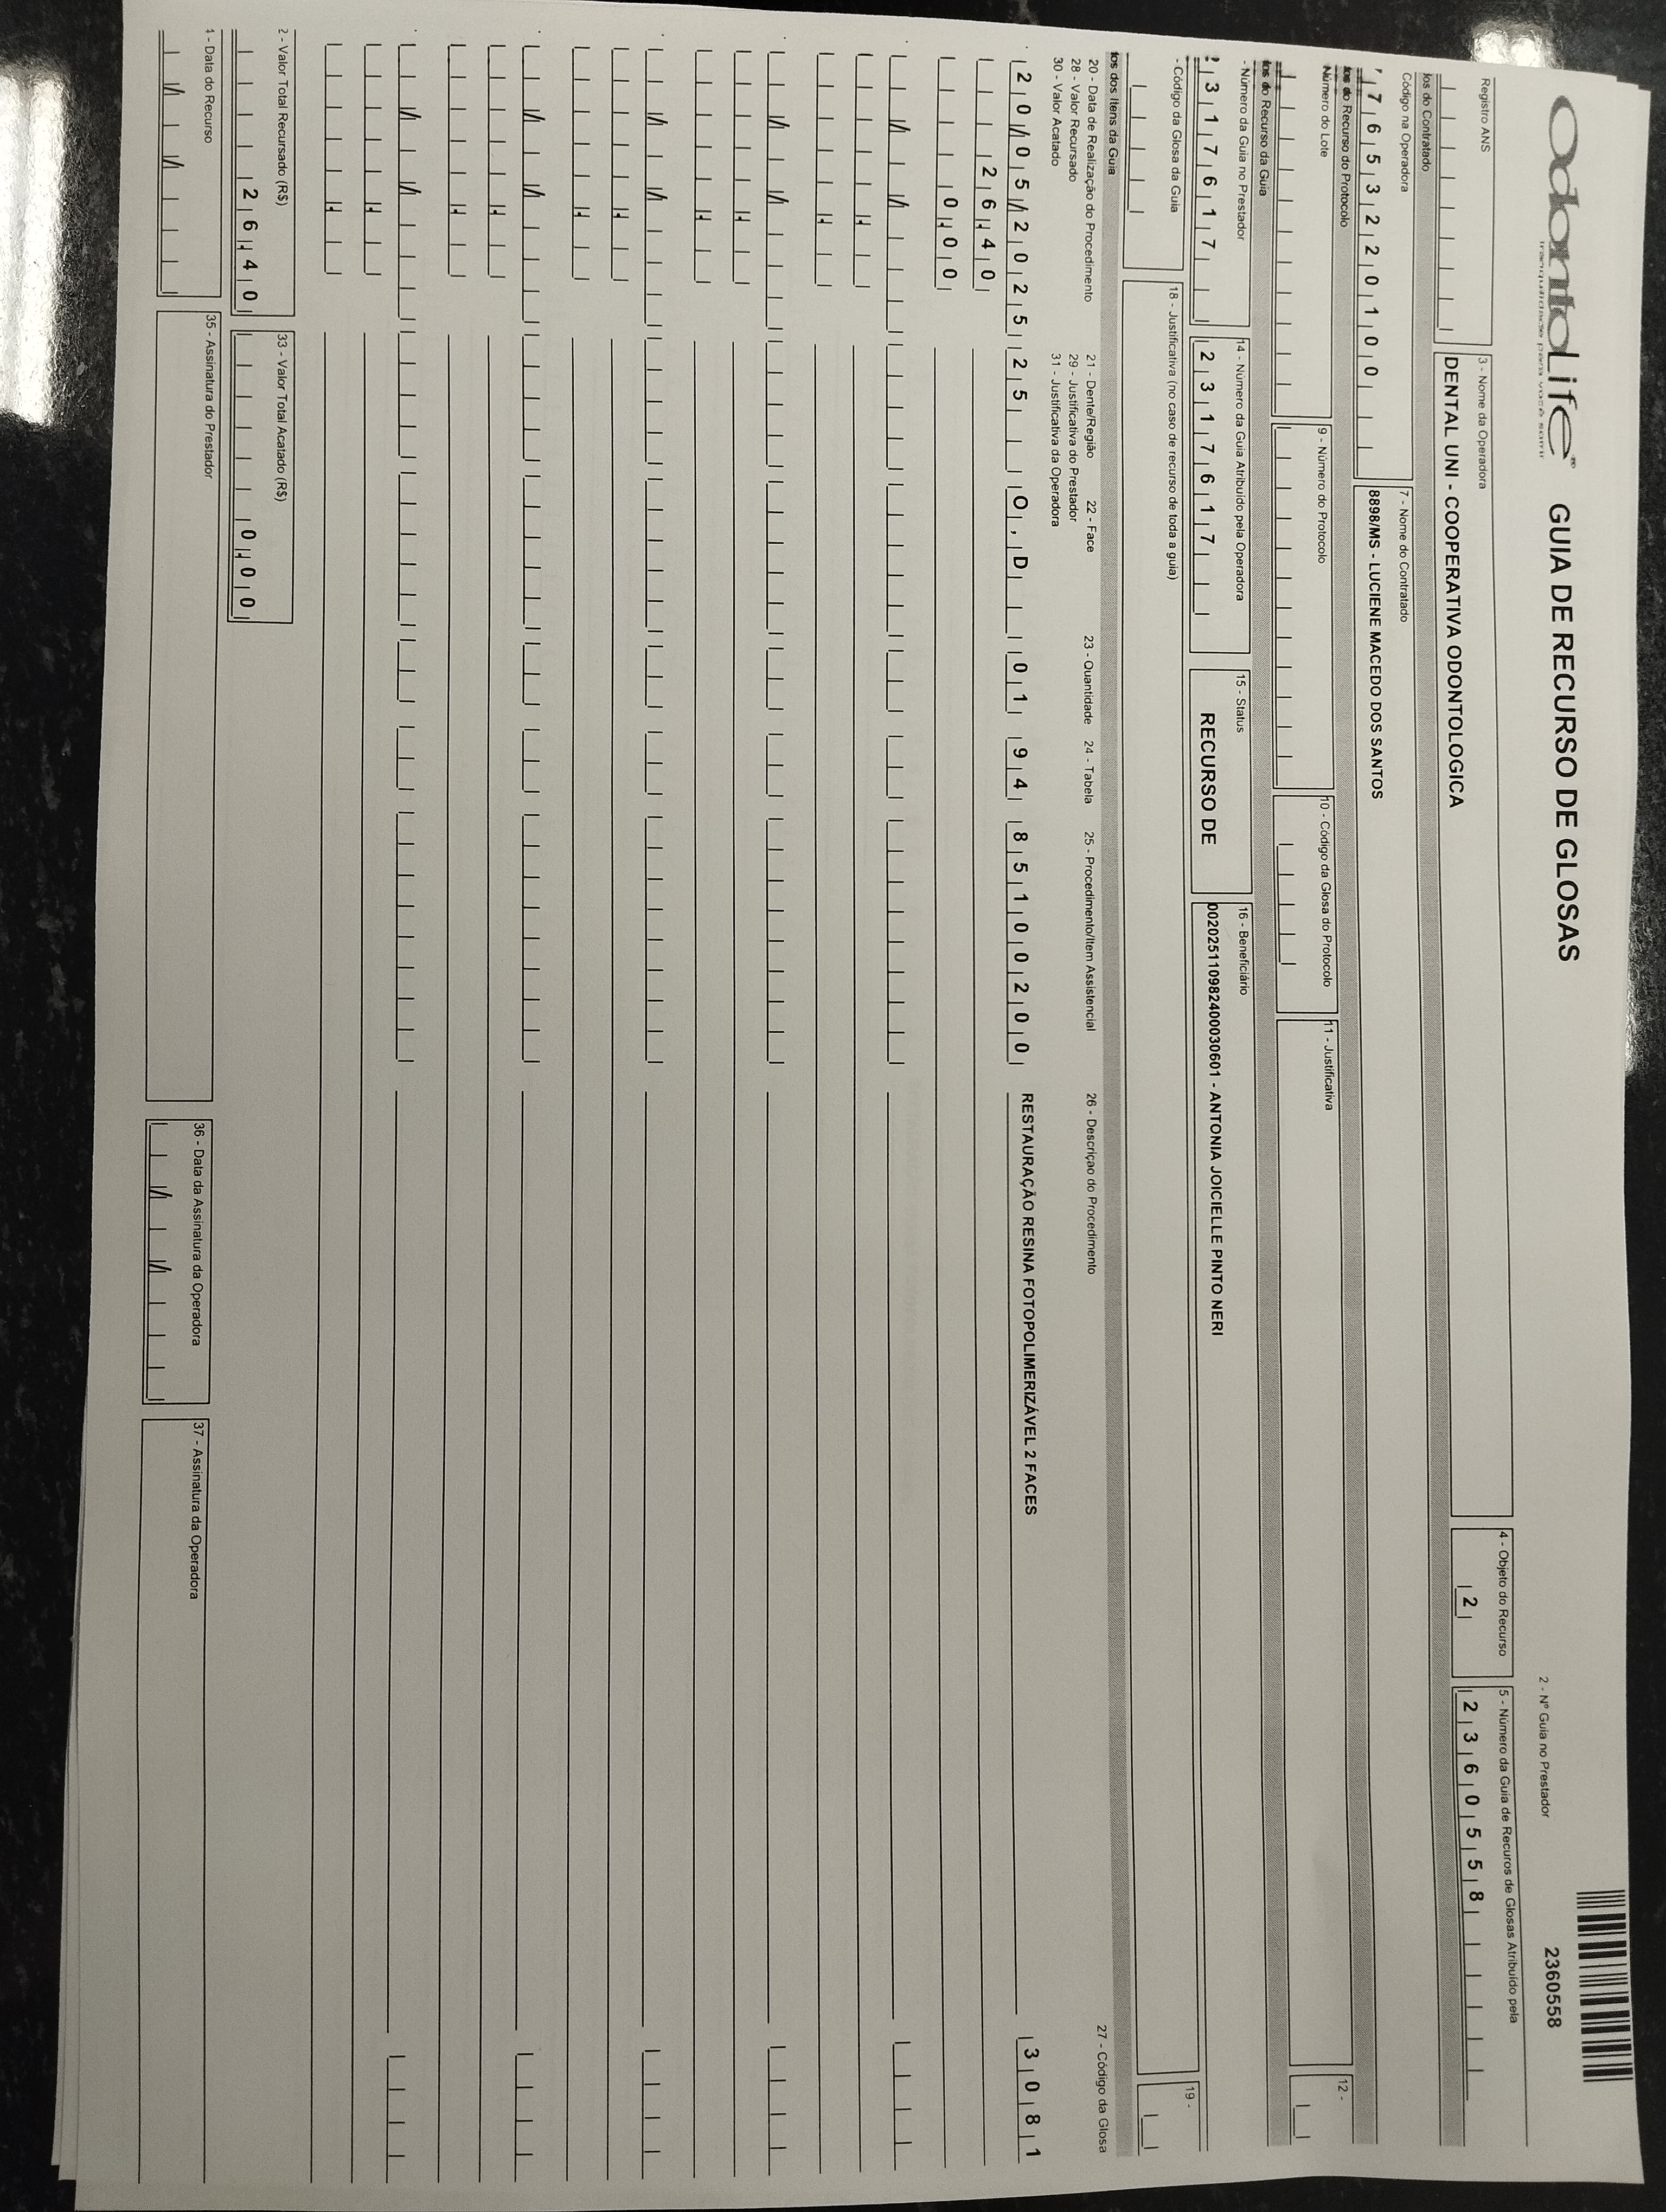 OdontoLife®
GUIA DE RECURSO DE GLOSAS
2 - Nº Guia no Prestador
2360558
Registro ANS
3 - Nome da Operadora
DENTAL UNI - COOPERATIVA ODONTOLOGICA
4 - Objeto do Recurso
2
5 - Número da Guia de Recuros de Glosas Atribuído pela
2360558
dos do Contratado
Código na Operadora
7653220100
7 - Nome do Contratado
8898/MS - LUCIENE MACEDO DOS SANTOS
do Recurso do Protocolo
Número do Lote
9 - Número do Protocolo
10 - Código da Glosa do Protocolo
11 - Justificativa
12 -
do Recurso da Guia
- Número da Guia no Prestador
317617
14 - Número da Guia Atribuído pela Operadora
2317617
15 - Status
RECURSO DE
16 - Beneficiário
002025110982400030601 - ANTONIA JOICIELLE PINTO NERI
- Código da Glosa da Guia
18 - Justificativa (no caso de recurso de toda a guia)
19 -
dos dos Itens da Guia
20 - Data de Realização do Procedimento
21 - Dente/Região
22 - Face
23 - Quantidade
24 - Tabela
25 - Procedimento/Item Assistencial
26 - Descriçao do Procedimento
27 - Código da Glosa
28 - Valor Recursado
29 - Justificativa do Prestador
30 - Valor Acatado
31 - Justificativa da Operadora
20/05/2025 25 O,D 01 94 85100200 RESTAURAÇÃO RESINA FOTOPOLIMERIZÁVEL 2 FACES 3081
26.40
0.00
2 - Valor Total Recursado (R$)
26.40
33 - Valor Total Acatado (R$)
0.00
4 - Data do Recurso
35 - Assinatura do Prestador
36 - Data da Assinatura da Operadora
37 - Assinatura da Operadora